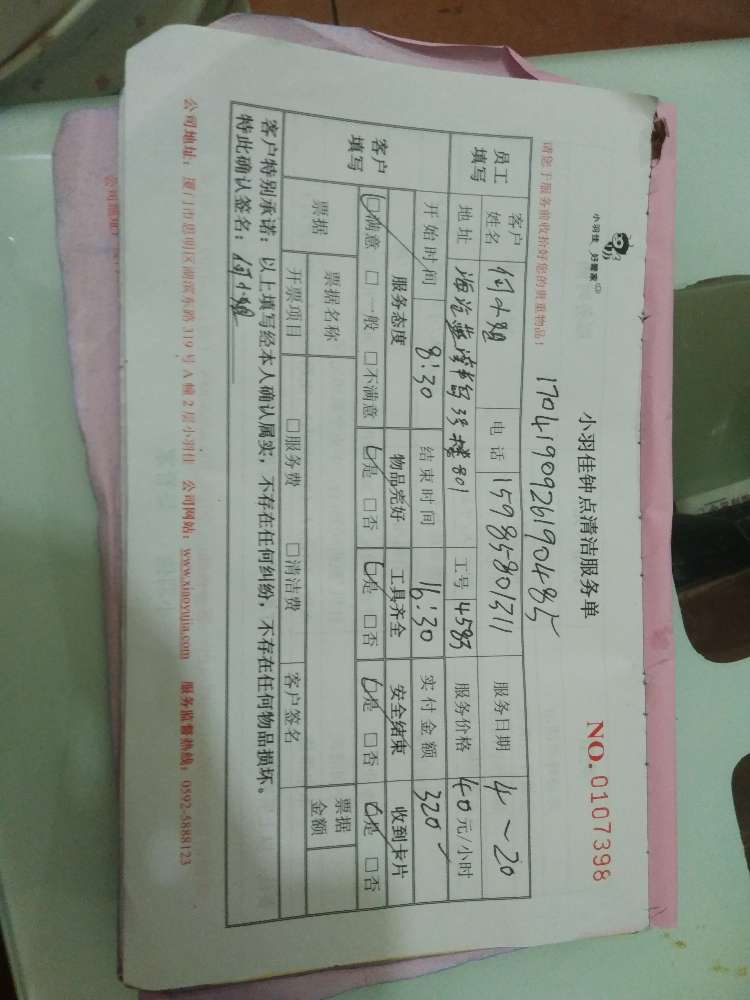 小羽佳 好管家
小羽佳钟点清洁服务单
NO. 0107398
请您于服务前收拾好您的贵重物品！
170419092619048 5
员工填写 客户姓名 何小姐 电话 15985801311 服务日期 4~20
地址 3号楼801 工号 4583 服务价格 40元/小时
开始时间 8:30 结束时间 16:30 实付金额 320
客户填写 服务态度 物品完好 工具齐全 安全结束 收到卡片
□满意 □一般 □不满意 □是 □否 □是 □否 □是 □否 □是 □否
票据 票据名称 票据金额
开票项目 □服务费 □清洁费 客户签名
客户特别承诺：以上填写经本人确认属实，不存在任何纠纷，不存在任何物品损坏。
特此确认签名：何小姐
公司地址：厦门市思明区湖滨东路319号A幢2层小羽佳 公司网站：www.xiaoyujia.com 服务监督热线：0592-5888123